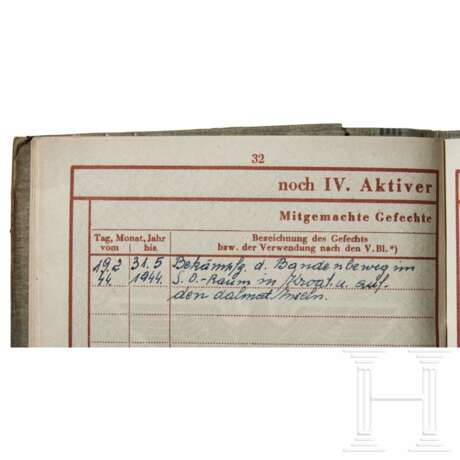 32
noch IV. Aktiver
Mitgemachte Gefechte
Tag, Monat, Jahr
vom bis
Bezeichnung des Gefechts
bzw. der Verwendung nach den V.Bl. *)
19.2 31.5 Bekämpfg. d. Bandenbeweg im
44 1944. S.O.-Raum in Kroat. u. auf
den dalmat. Inseln.
H